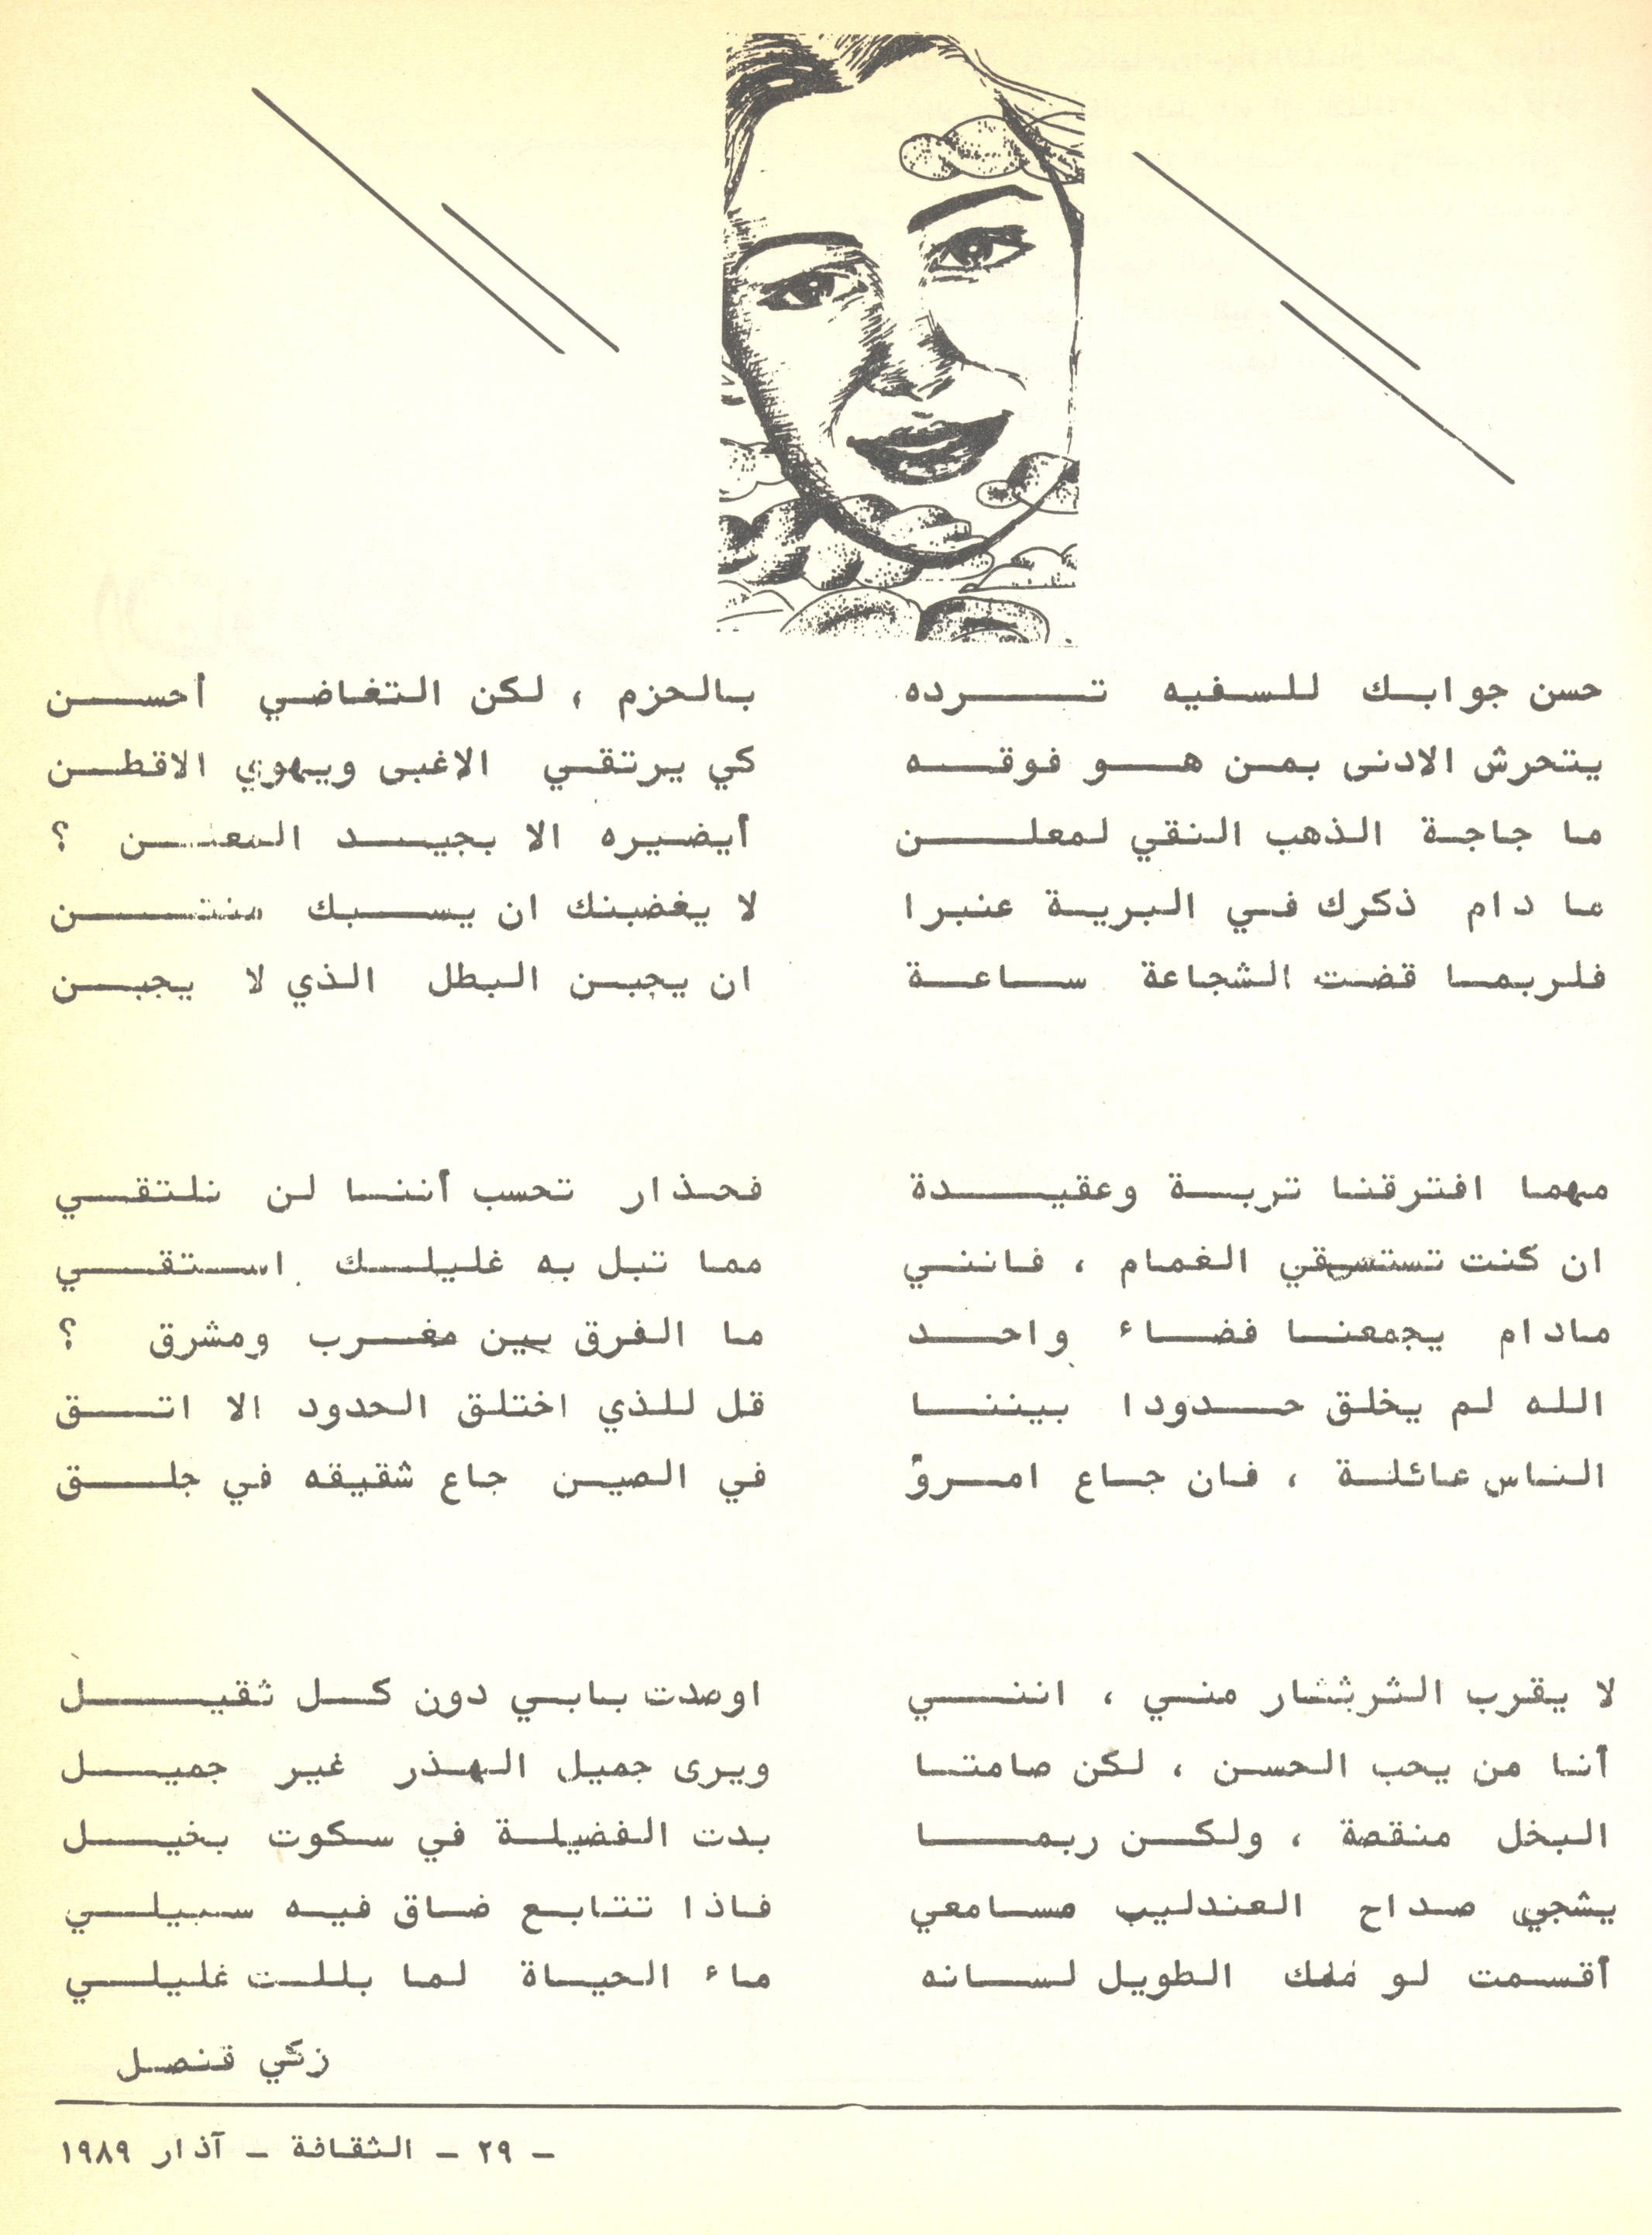 حسن جوابك للسفيه ترده بالحزم ، لكن التغاضي أحسن
يتحرش الادنى بمن هو فوقه كي يرتقي الاغبى ويهوي الاقطن
ما جاجة الذهب النقي لمعلن أيضيره الا بجيد المعلن ؟
ما دام ذكرك في البرية عنبرا لا يغضبنك ان يسبك منتن
فلربما قضت الشجاعة ساعة ان يجبن البطل الذي لا يجبن
مهما افترقنا تربة وعقيدة فحذار تحسب أننا لن نلتقي
ان كنت تستسقي الغمام ، فانني مما تبل به غليلك استقي
مادام يجمعنا فضاء واحد ما الفرق بين مغرب ومشرق ؟
الله لم يخلق حدودا بيننا قل للذي اختلق الحدود الا اتق
الناس عائلة ، فان جاع امرؤ في الصين جاع شقيقه في جلق
لا يقرب الثرثار مني ، انني اوصدت بابي دون كل ثقيل
أنا من يحب الحسن ، لكن صامتا ويرى جميل الهذر غير جميل
البخل منقصة ، ولكن ربما بدت الفضيلة في سكوت بخيل
يشجي صداح العندليب مسامعي فاذا تتابع ضاق فيه سبيلي
أقسمت لو ملك الطويل لسانه ماء الحياة لما بللت غليلي
زكي قنصل
ـ ٢٩ ـ الثقافة ـ آذار ١٩٨٩